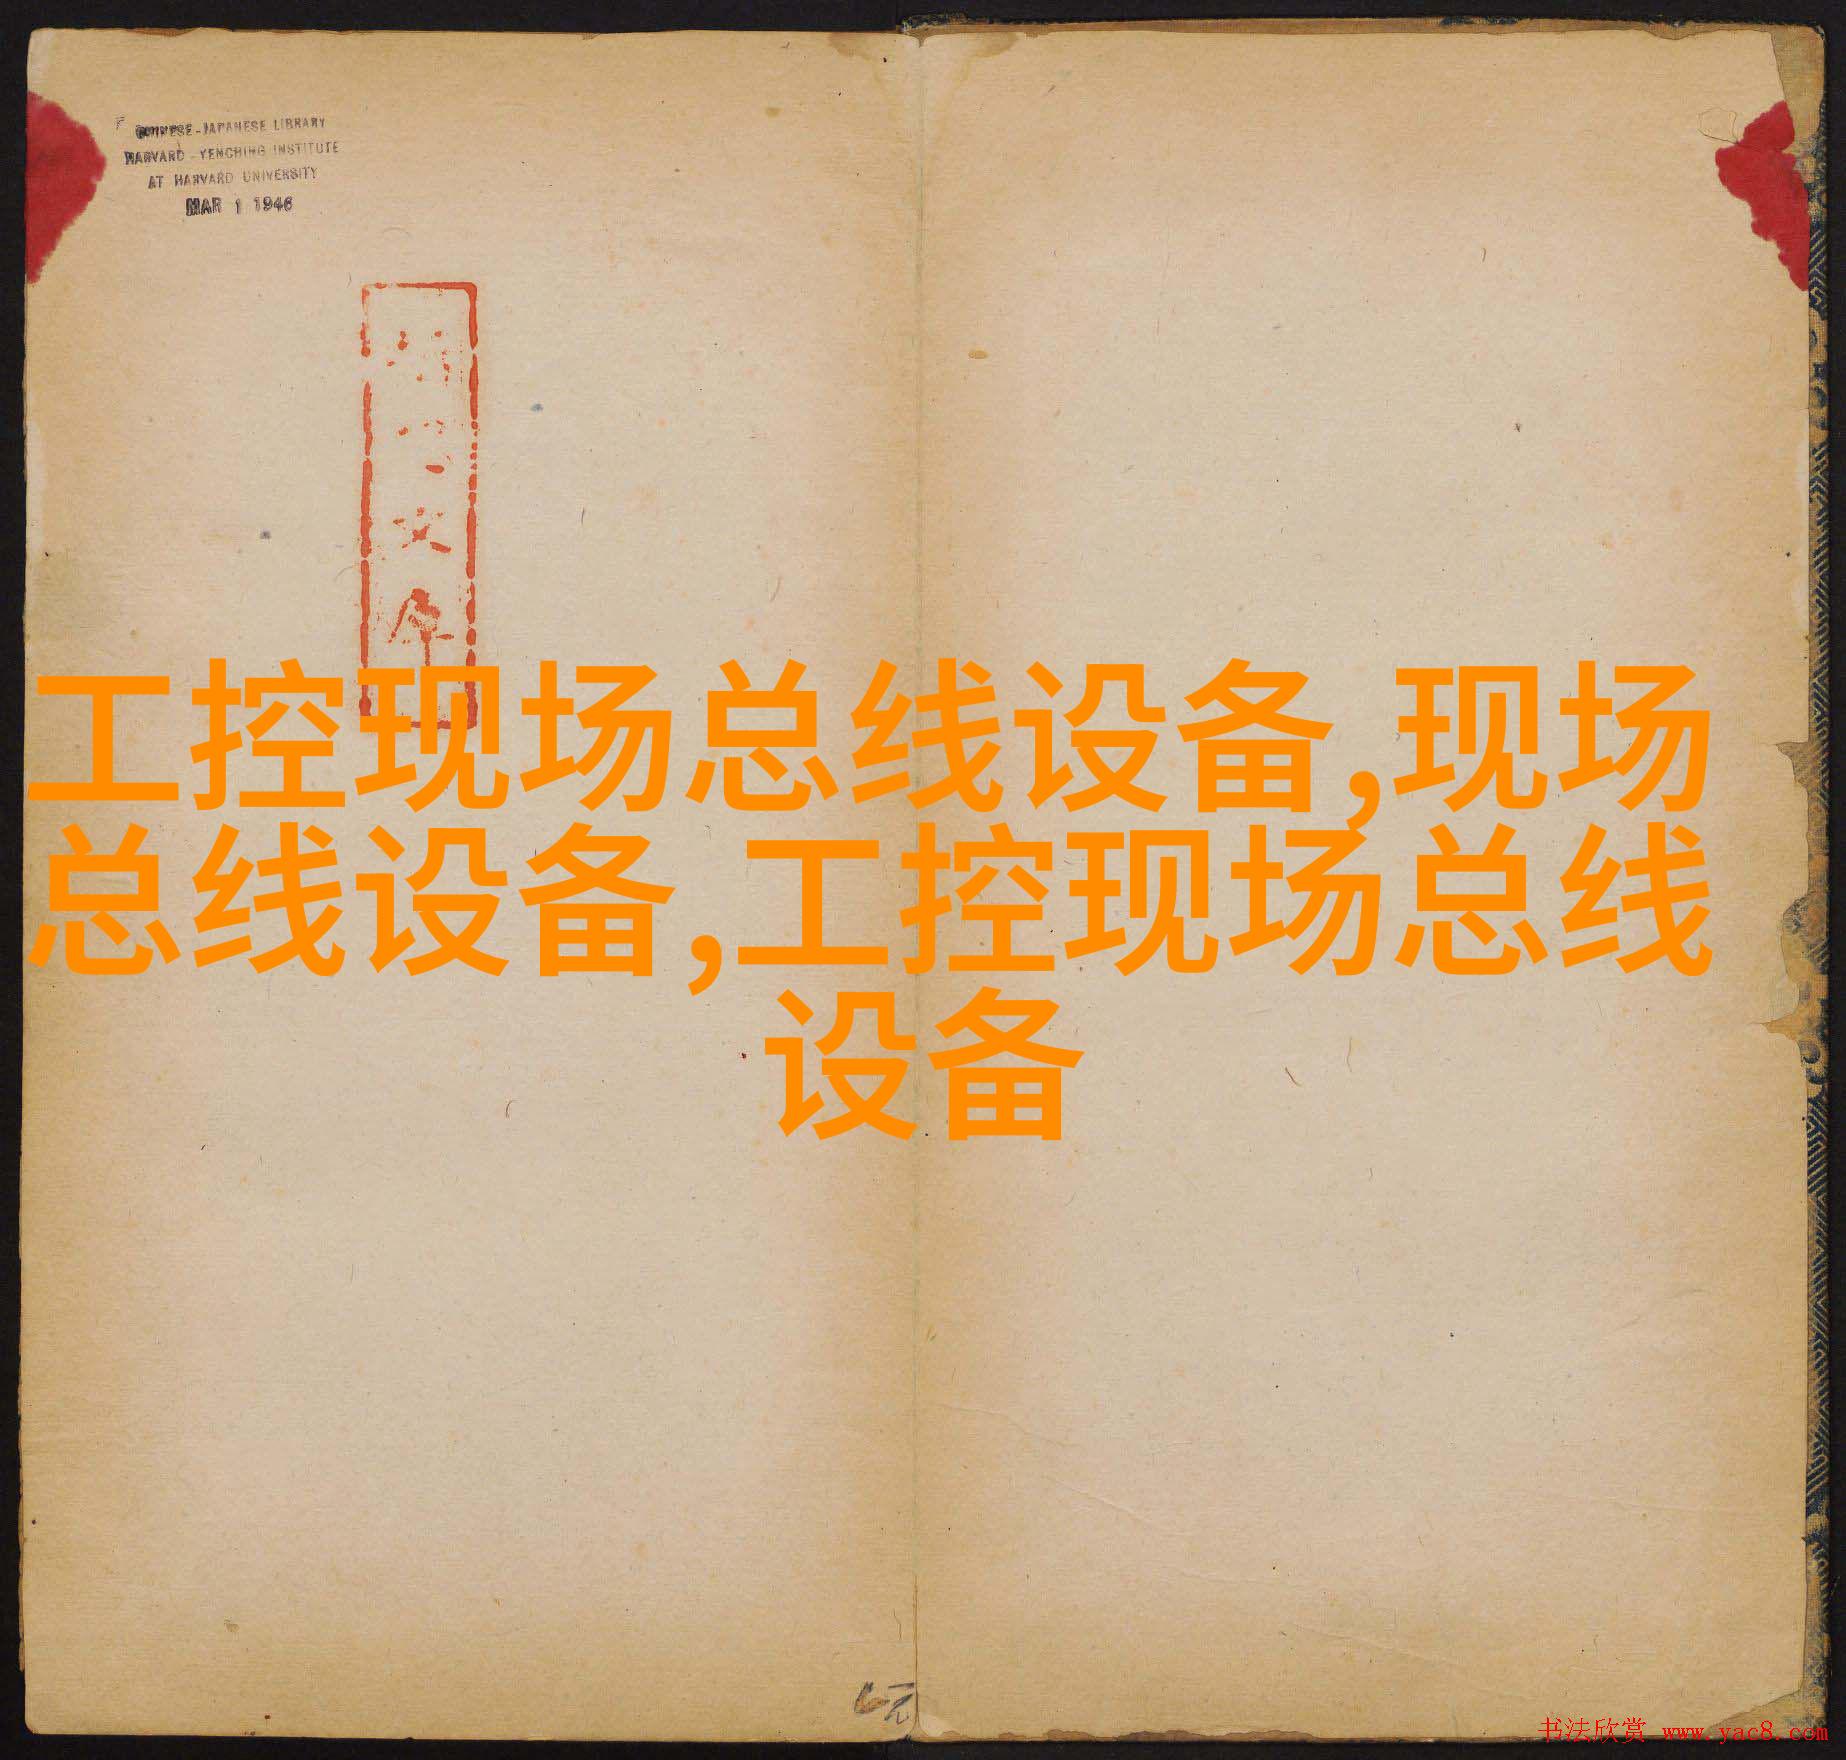 CHINESE-JAPANESE LIBRARY
HARVARD-YENCHING INSTITUTE
AT HARVARD UNIVERSITY
MAR 1 1946
工控现场总线设备,现场
总线设备,工控现场总线
设备
元
书法欣赏 www.yac8.com